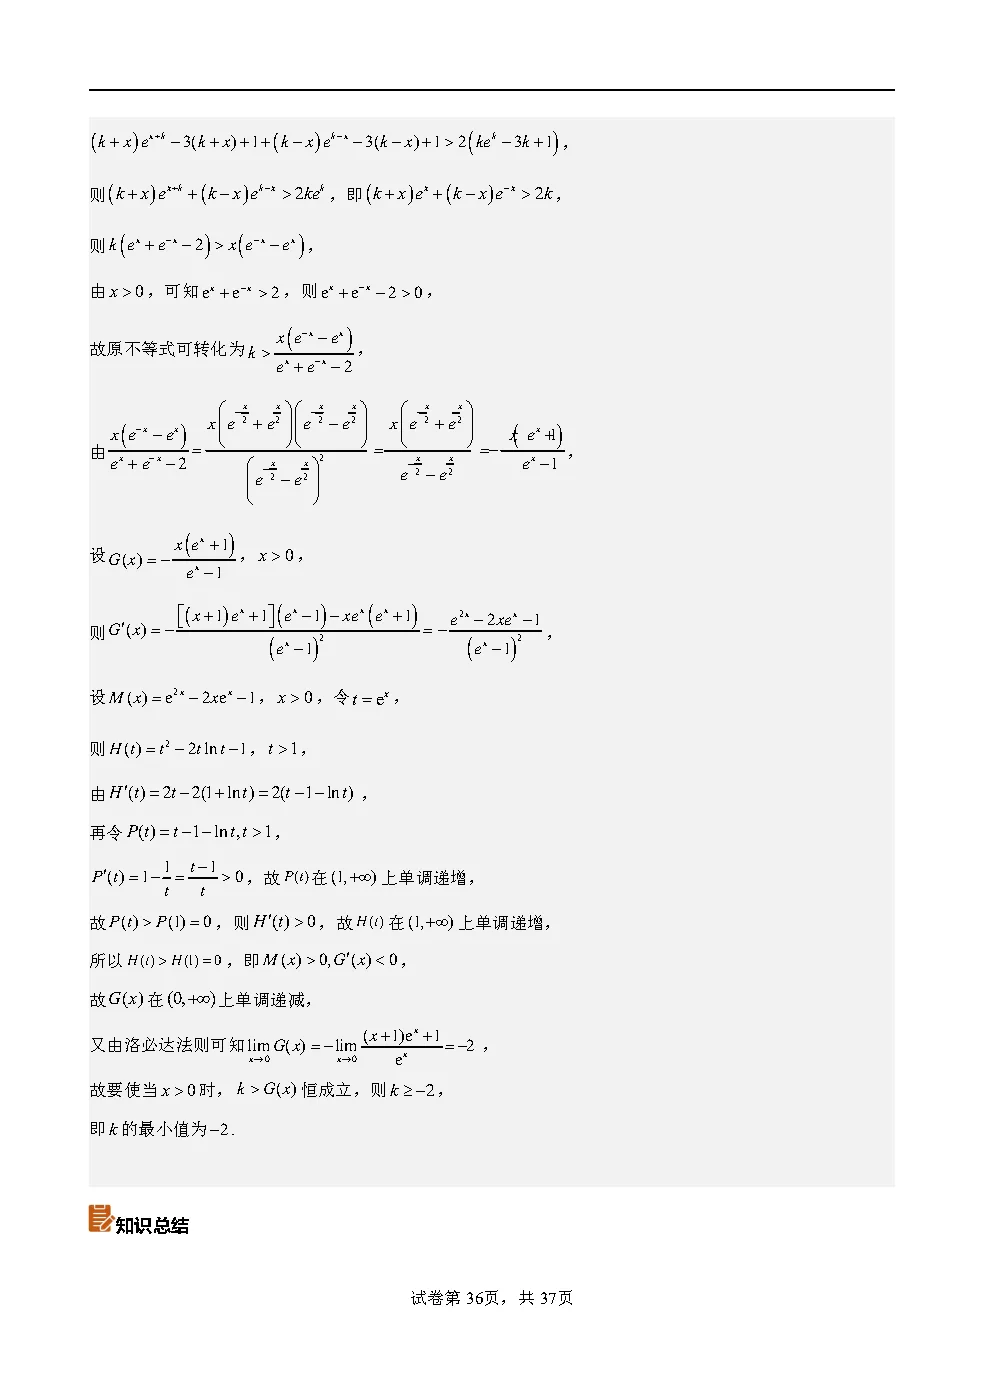 (k+x)e^{x+k}−3(k+x)+1+(k−x)e^{k−x}−3(k−x)+1>2(ke^{k}−3k+1),
则(k+x)e^{x+k}+(k−x)e^{k−x}>2ke^{k}，即(k+x)e^{x}+(k−x)e^{−x}>2k,
则k(e^{x}+e^{−x}−2)>x(e^{−x}−e^{x}),
由x>0，可知e^{x}+e^{−x}>2，则e^{x}+e^{−x}−2>0，
故原不等式可转化为k>\frac{x(e^{−x}−e^{x})}{e^{x}+e^{−x}−2},
由\frac{x(e^{−x}−e^{x})}{e^{x}+e^{−x}−2}=\frac{x(e^{−\frac{x}{2}}+e^{\frac{x}{2}})(e^{−\frac{x}{2}}−e^{\frac{x}{2}})}{(e^{−\frac{x}{2}}−e^{\frac{x}{2}})^{2}}=\frac{x(e^{−\frac{x}{2}}+e^{\frac{x}{2}})}{e^{−\frac{x}{2}}−e^{\frac{x}{2}}}=−\frac{x(e^{x}+1)}{e^{x}−1},
设G(x)=−\frac{x(e^{x}+1)}{e^{x}−1}，x>0，
则G′(x)=−\frac{[(x+1)e^{x}+1](e^{x}−1)−xe^{x}(e^{x}+1)}{(e^{x}−1)^{2}}=−\frac{e^{2x}−2xe^{x}−1}{(e^{x}−1)^{2}}，
设M(x)=e^{2x}−2xe^{x}−1，x>0，令t=e^{x}，
则H(t)=t^{2}−2t ln t−1，t>1，
由H′(t)=2t−2(1+ln t)=2(t−1−ln t)，
再令P(t)=t−1−ln t,t>1，
P′(t)=1−\frac{1}{t}=\frac{t−1}{t}>0，故P(t)在(1,+∞)上单调递增，
故P(t)>P(1)=0，则H′(t)>0，故H(t)在(1,+∞)上单调递增，
所以H(t)>H(1)=0，即M(x)>0,G′(x)<0，
故G(x)在(0,+∞)上单调递减，
又由洛必达法则可知\lim_{x→0}G(x)=−\lim_{x→0}\frac{(x+1)e^{x}+1}{e^{x}}=−2，
故要使当x>0时，k>G(x)恒成立，则k≥−2，
即k的最小值为−2.
知识总结
试卷第36页，共37页